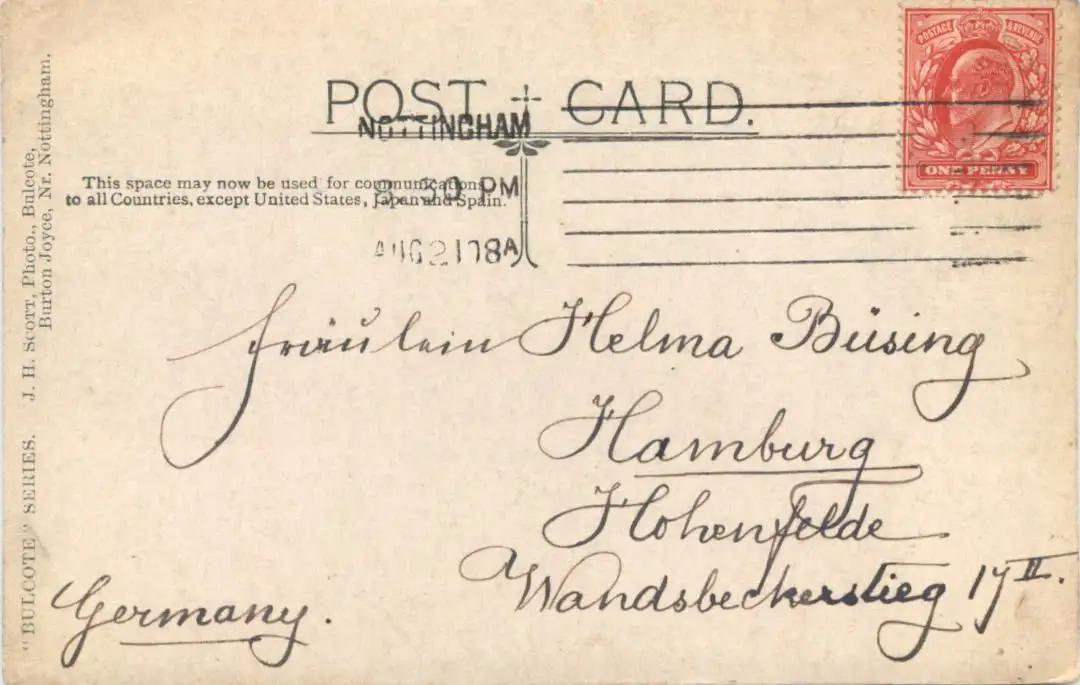 POST CARD.
POSTAGE & REVENUE
ONE PENNY
NOTTINGHAM
PM
This space may now be used for communications
to all Countries, except United States, Japan and Spain.
AUG 21 8A
Fräulein Helma Büsing
Hamburg
Hohenfelde
Wandsbeckerstieg 17 II.
Germany.
"BULCOTE" SERIES. J. H. SCOTT, Photo., Bulcote,
Burton Joyce, Nr. Nottingham.